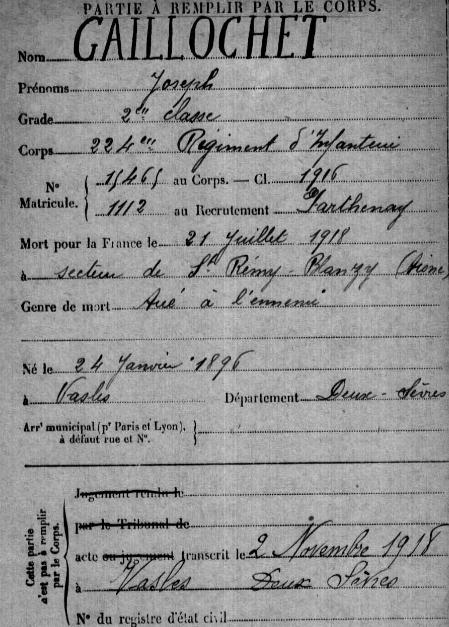 PARTIE À REMPLIR PAR LE CORPS.
Nom GAILLOCHET
Prénoms Joseph
Grade 2e classe
Corps 224e Régiment d'Infanterie
N° Matricule. { 15465 au Corps. — Cl. 1916
1112 au Recrutement Parthenay
Mort pour la France le 21 Juillet 1918
à secteur de St Rémy-Blanzy (Aisne)
Genre de mort Tué à l'ennemi
Né le 24 Janvier 1896
à Vasles Département Deux-Sèvres
Arrt municipal (pr Paris et Lyon), à défaut rue et N°. {
Cette partie n'est pas à remplir par le Corps.
Jugement rendu le
par le Tribunal de
acte ou jugement transcrit le 2 Novembre 1918
à Vasles Deux Sèvres
N° du registre d'état civil